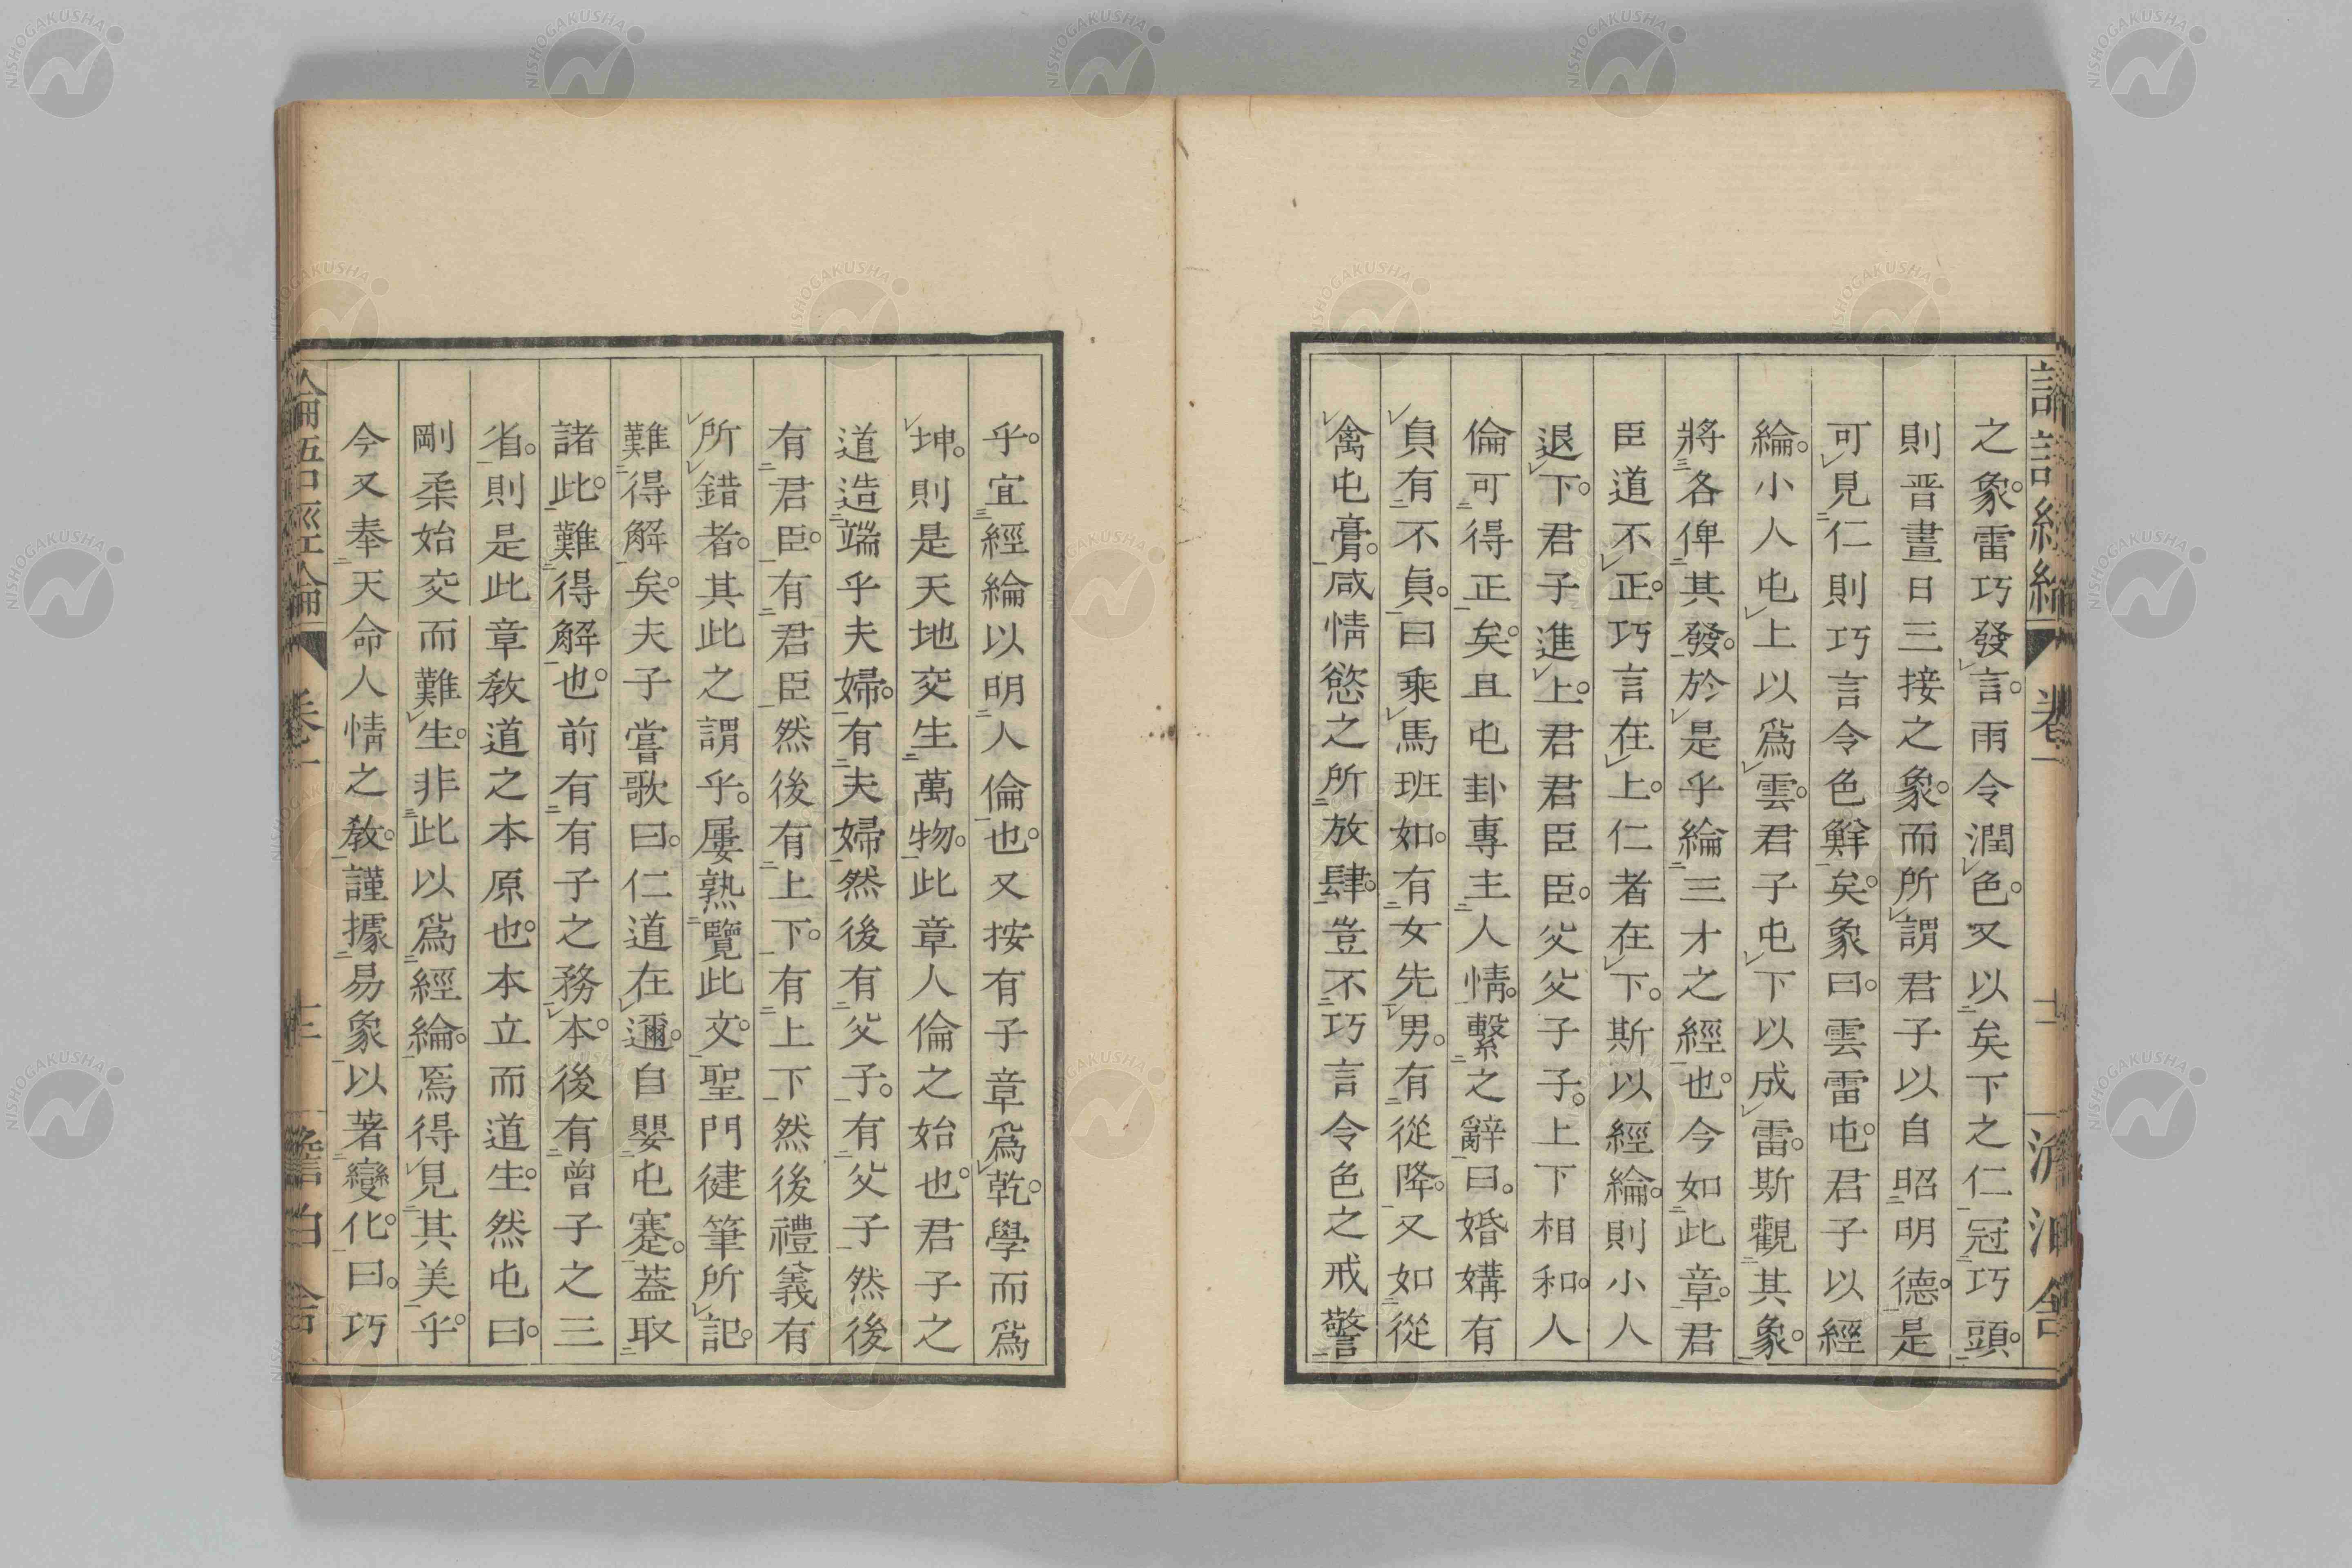 之象。雷巧發言。雨令潤色。又以矣下之仁冠巧頭。
則晋晝日三接之象。而所謂君子以自昭明德。是
可見仁則巧言令色鮮矣。象曰。雲雷屯。君子以經
綸。小人屯上以爲雲。君子屯下以成雷。斯觀其象。
將各俾其發。於是乎綸三才之經也。今如此章。君
臣道不正。巧言在上。仁者在下。斯以經綸。則小人
退下。君子進上。君君臣臣。父父子子。上下相和。人
倫可得正矣。且屯卦專主人情。繫之辭曰。婚媾有
貞有不貞。曰乘馬班如。有女先男。有從降。又如從
禽屯膏。咸情慾之所放肆。豈不巧言令色之戒警
乎。宜經綸以明人倫也。又按有子章爲乾。學而爲
坤。則是天地交生萬物。此章人倫之始也。君子之
道造端乎夫婦。有夫婦然後有父子。有父子然後
有君臣。有君臣然後有上下。有上下然後禮義有
所錯者。其此之謂乎。屢熟覽此文。聖門徤筆所記。
難得解矣。夫子嘗歌曰。仁道在邇。自嬰屯蹇。蓋取
諸此。難得解也。前有有子之務本。後有曾子之三
省。則是此章教道之本原也。本立而道生。然屯曰。
剛柔始交而難生。非此以爲經綸。焉得見其美乎。
今又奉天命人情之教。謹據易象以著變化。曰。巧
論語經綸 卷一